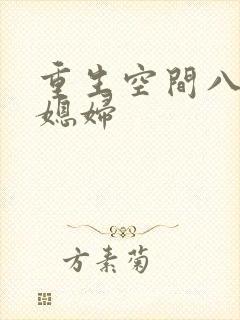 重生空間八
媳婦
方素菊